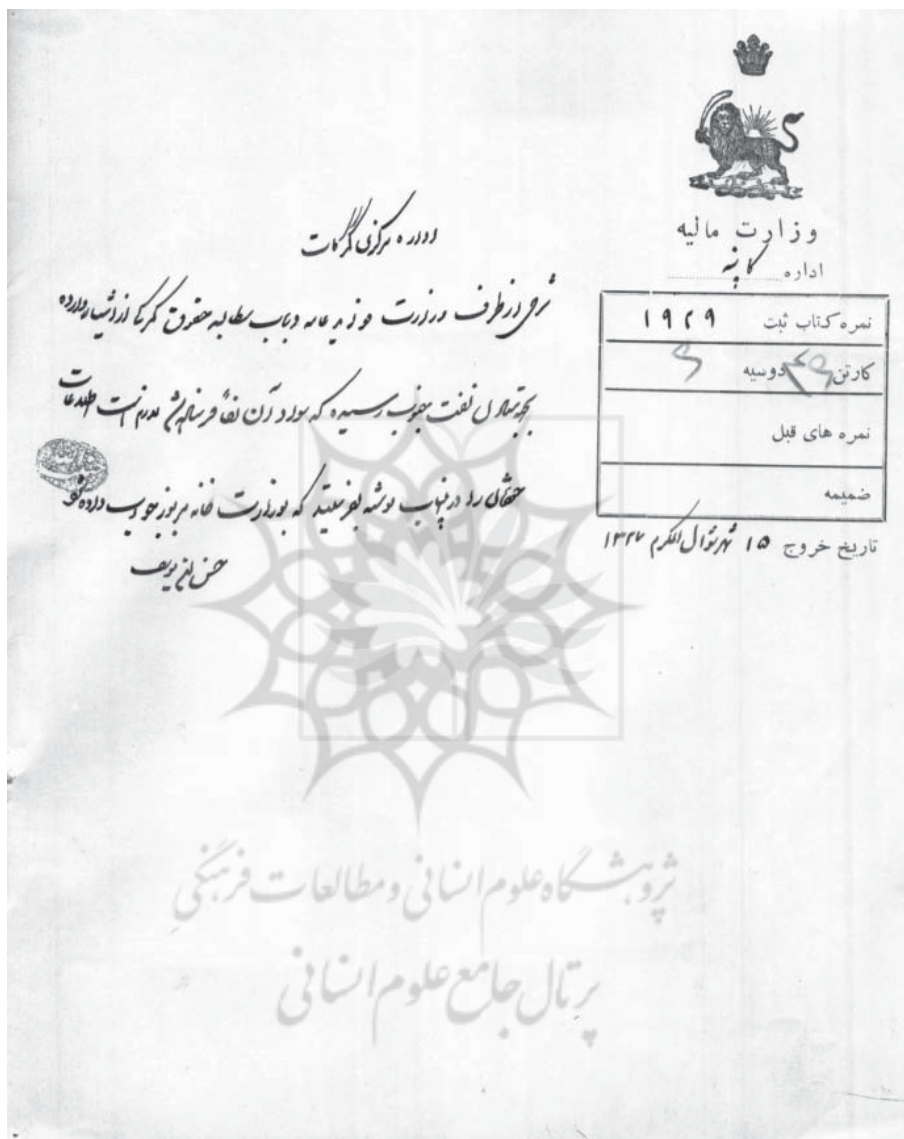 وزارت مالیه
اداره کابینه
نمره کتاب ثبت ۱۹۲۹
کارتن دوسیه
نمره های قبل
ضمیمه
تاریخ خروج ۱۵ شهر شوال المکرم ۱۳۲۷
اداره مرکزی گمرکات
شرحی از طرف وزارت فوائد عامه در باب مطالبه حقوق گمرکی از اشیاء وارده
بجهة نفت جنوب رسیده که سواد آن لفاً فرستاده لازم است اطلاعات
خودتان را در این باب نوشته بفرستید که بوزارت خانه مزبور جواب داده شود
پژوهشگاه علوم انسانی و مطالعات فرهنگی
پرتال جامع علوم انسانی